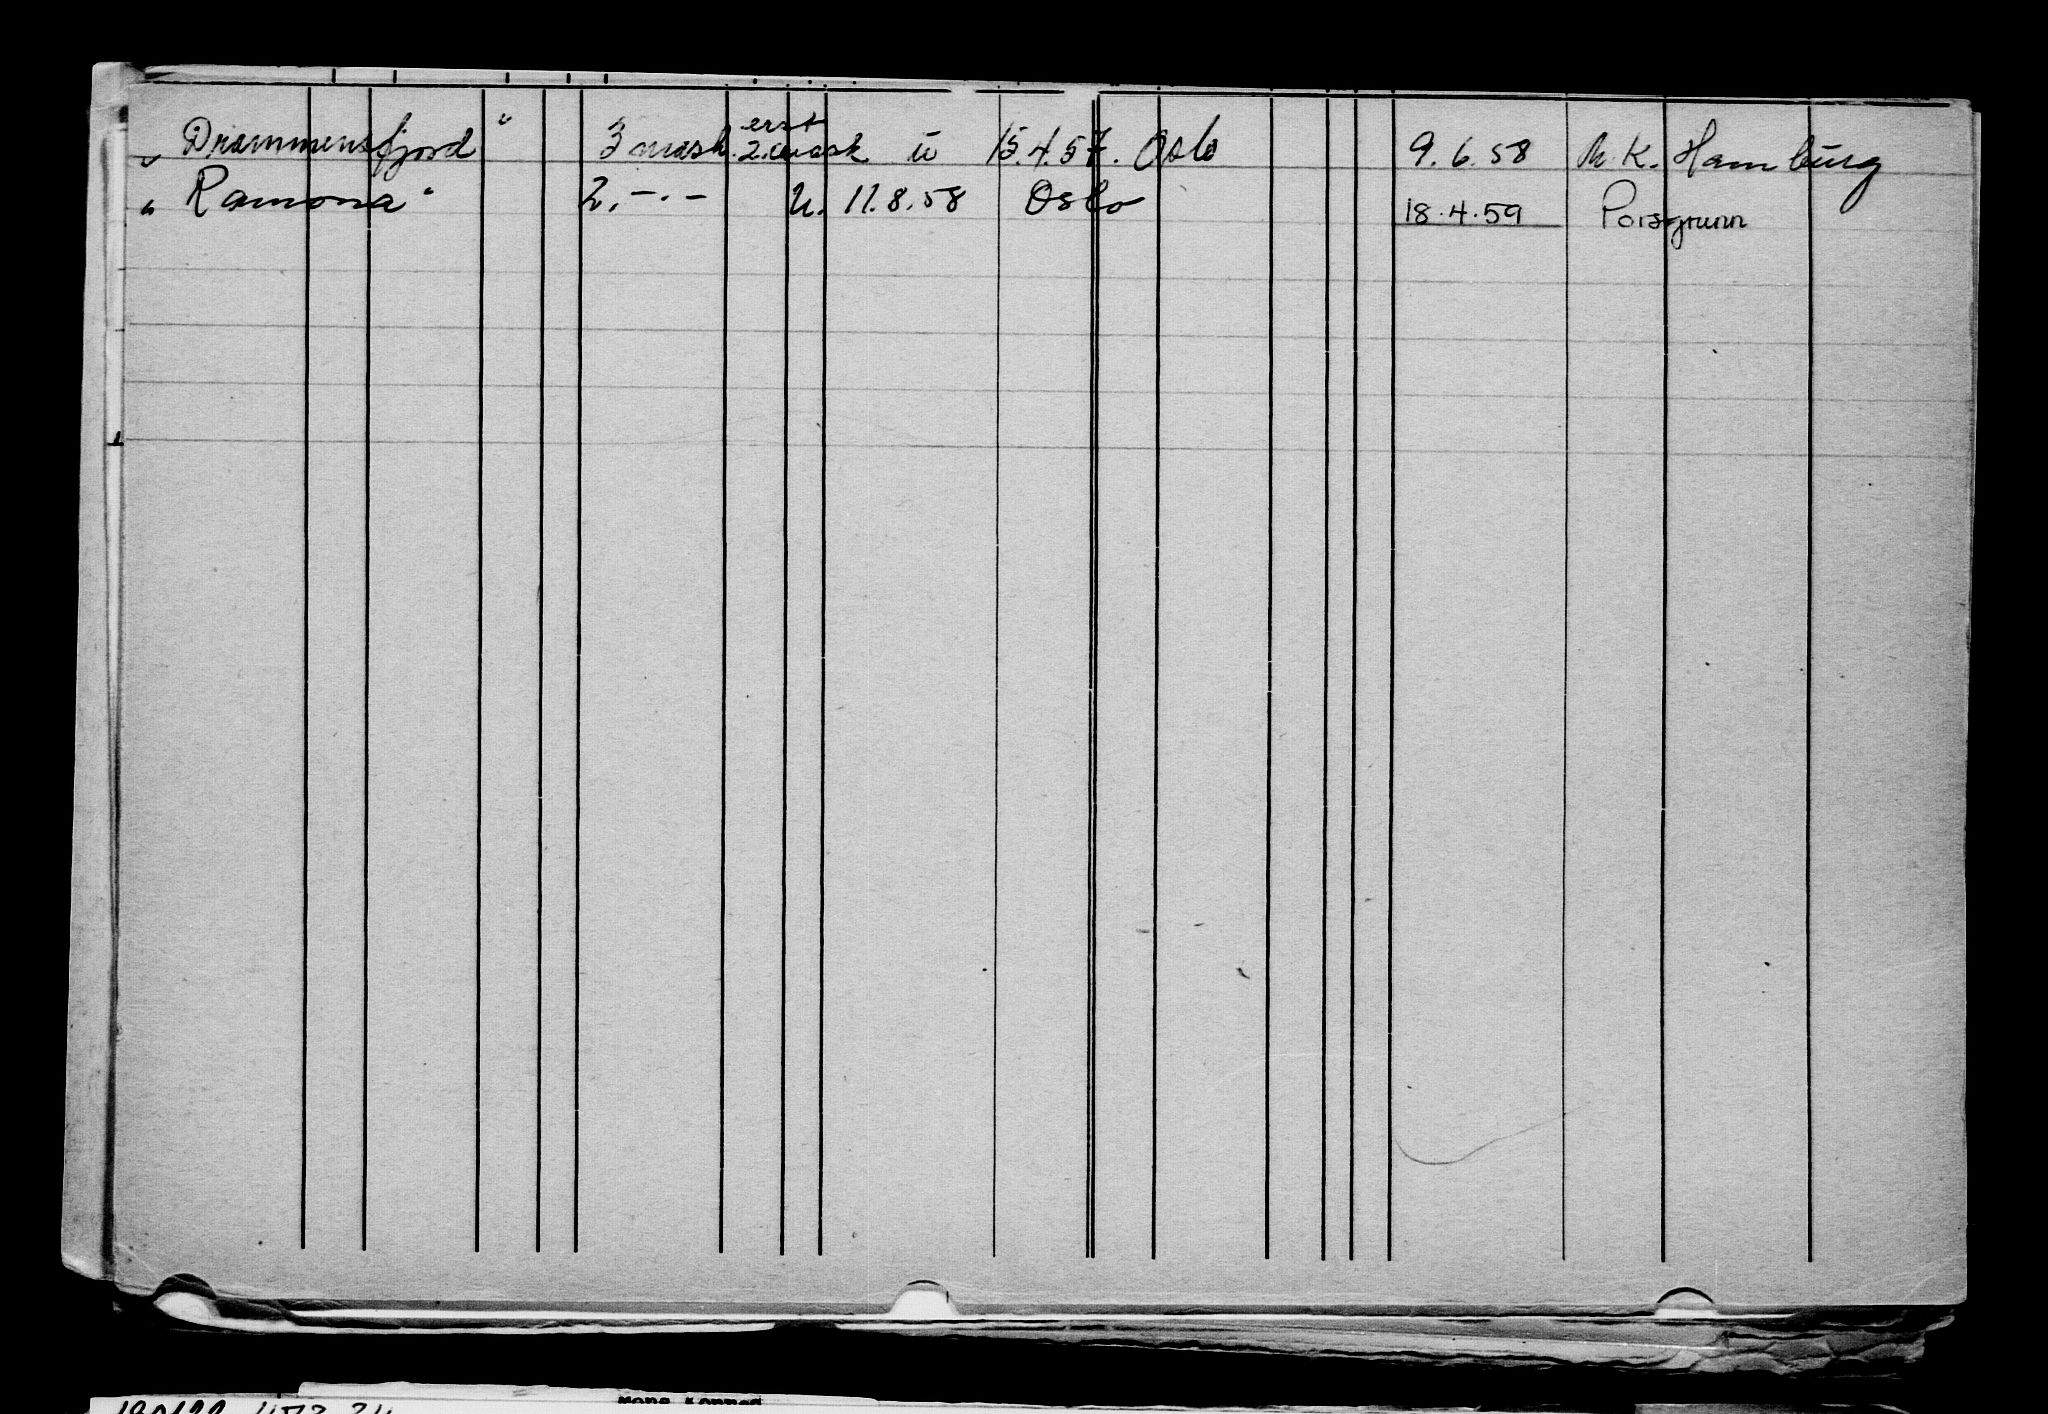 „Drammensfjord“ 3 mask. erst 2. mask u 15.4.57. Oslo 9.6.58 M.K. Hamburg
„Ramona“ 2. -"- u. 11.8.58 Oslo 18.4.59 Porsgrunn